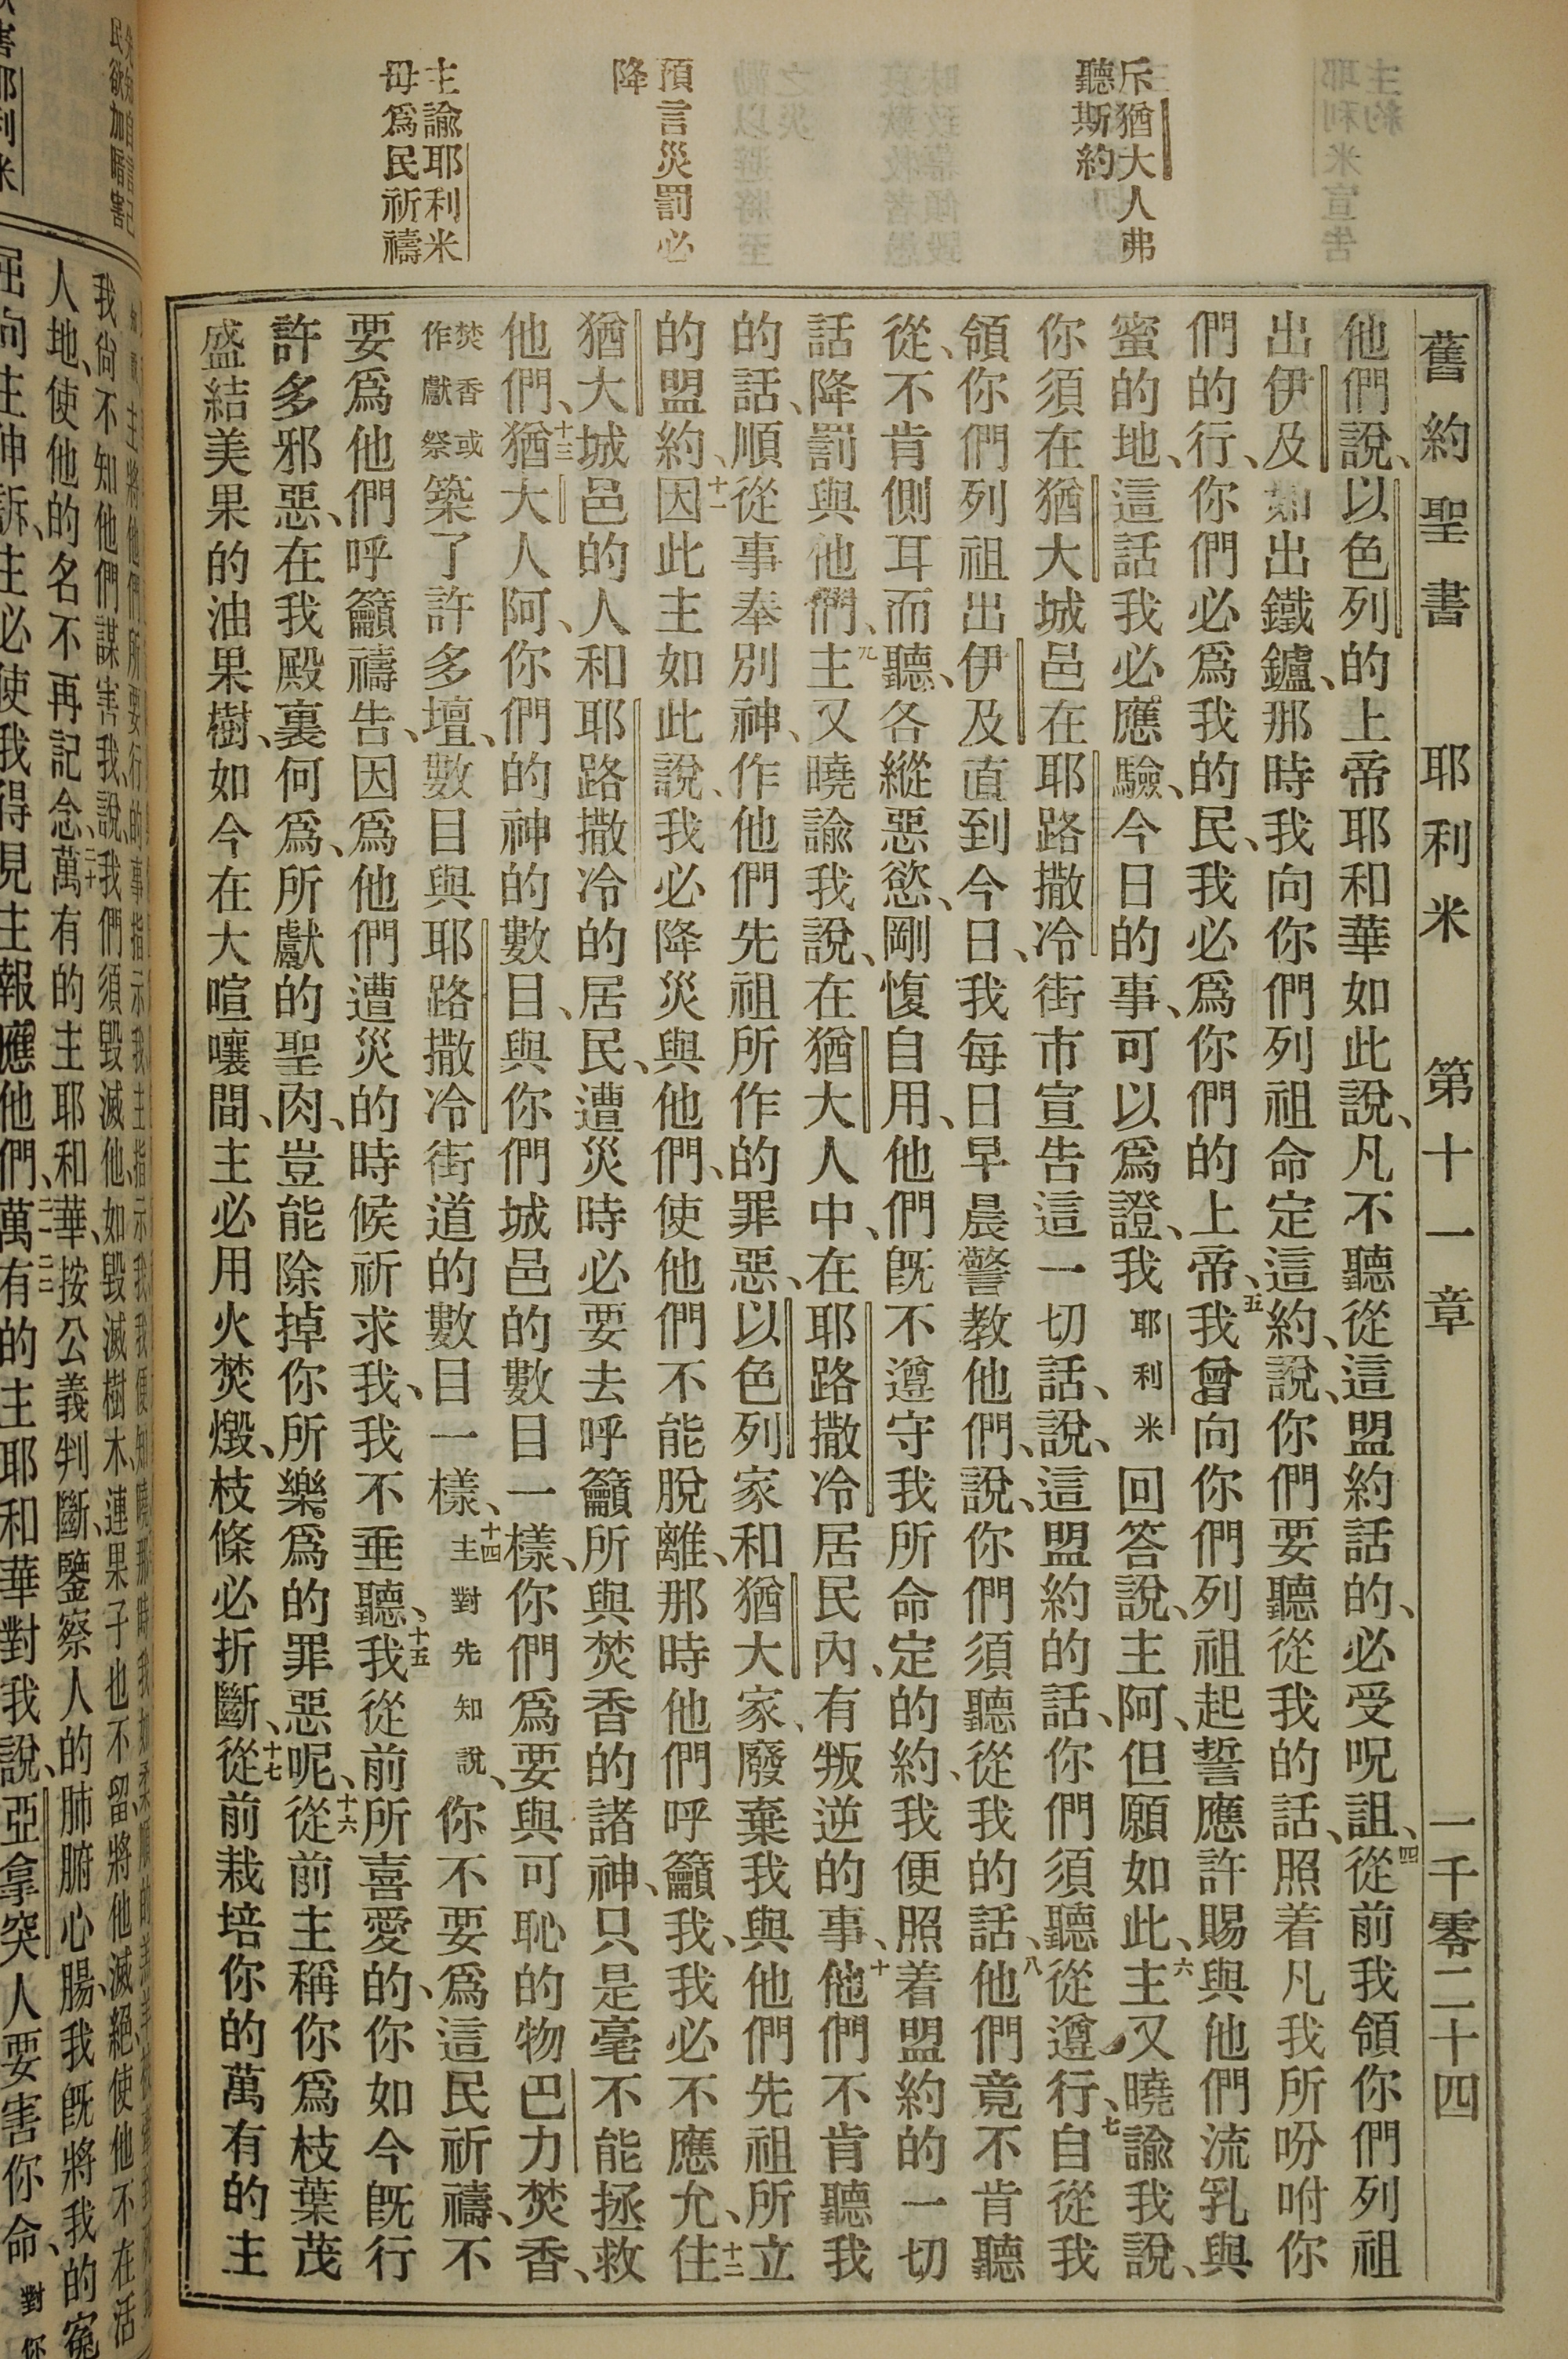 舊約聖書 耶利米 第十一章 一千零二十四
斥猶大人弗
聽斯約
預言災罰必
降
主諭耶利米
毋爲民祈禱
他們說、以色列的上帝耶和華如此說、凡不聽從這盟約話的、必受呪詛、四從前我領你們列祖
出伊及如出鐵鑪、那時我向你們列祖命定這約、說、你們要聽從我的話、照着凡我所吩咐你
們的行、你們必爲我的民、我必爲你們的上帝、五我曾向你們列祖起誓應許賜與他們流乳與
蜜的地、這話我必應驗、今日的事、可以爲證、我耶利米回答說、主阿、但願如此、六主又曉諭我說、
你須在猶大城邑在耶路撒冷街市宣告這一切話、說、這盟約的話、你們須聽從遵行、七自從我
領你們列祖出伊及直到今日、我每日早晨警教他們、說、你們須聽從我的話、八他們竟不肯聽
從、不肯側耳而聽、各縱惡慾、剛愎自用、他們旣不遵守我所命定的約、我便照着盟約的一切
話降罰與他們、九主又曉諭我說、在猶大人中、在耶路撒冷居民內、有叛逆的事、十他們不肯聽我
的話、順從事奉別神、作他們先祖所作的罪惡、以色列家和猶大家、廢棄我與他們先祖所立
的盟約、十一因此主如此說、我必降災與他們、使他們不能脫離、那時他們呼籲我、我必不應允、十二住
猶大城邑的人和耶路撒冷的居民、遭災時必要去呼籲所與焚香的諸神、只是毫不能拯救
他們、十三猶大人阿、你們的神的數目、與你們城邑的數目一樣、你們爲要與可恥的物巴力焚香、
焚香或作獻祭築了許多壇、數目與耶路撒冷街道的數目一樣、十四主對先知說、你不要爲這民祈禱、不
要爲他們呼籲禱告、因爲他們遭災的時候祈求我、我不垂聽、十五我從前所喜愛的、你如今旣行
許多邪惡、在我殿裏何爲、所獻的聖肉、豈能除掉你所樂爲的罪惡呢、十六從前主稱你爲枝葉茂
盛結美果的油果樹、如今在大喧嚷間、主必用火焚燬、枝條必折斷、十七從前栽培你的萬有的主
民欲加暗害
主將他們所要行的事指示我主指示我我便知曉那時我如柔順的
我尙不知他們謀害我、說、我們須毀滅他、如毀滅樹木、連果子也不留、將他滅絕使他不在活
人地、使他的名不再記念、二十萬有的主耶和華、按公義判斷、鑒察人的肺腑心腸、我旣將我的冤
屈向主伸訴、主必使我得見主報應他們、二一二二萬有的主耶和華對我說、亞拿突人要害你命、對你
害耶利米